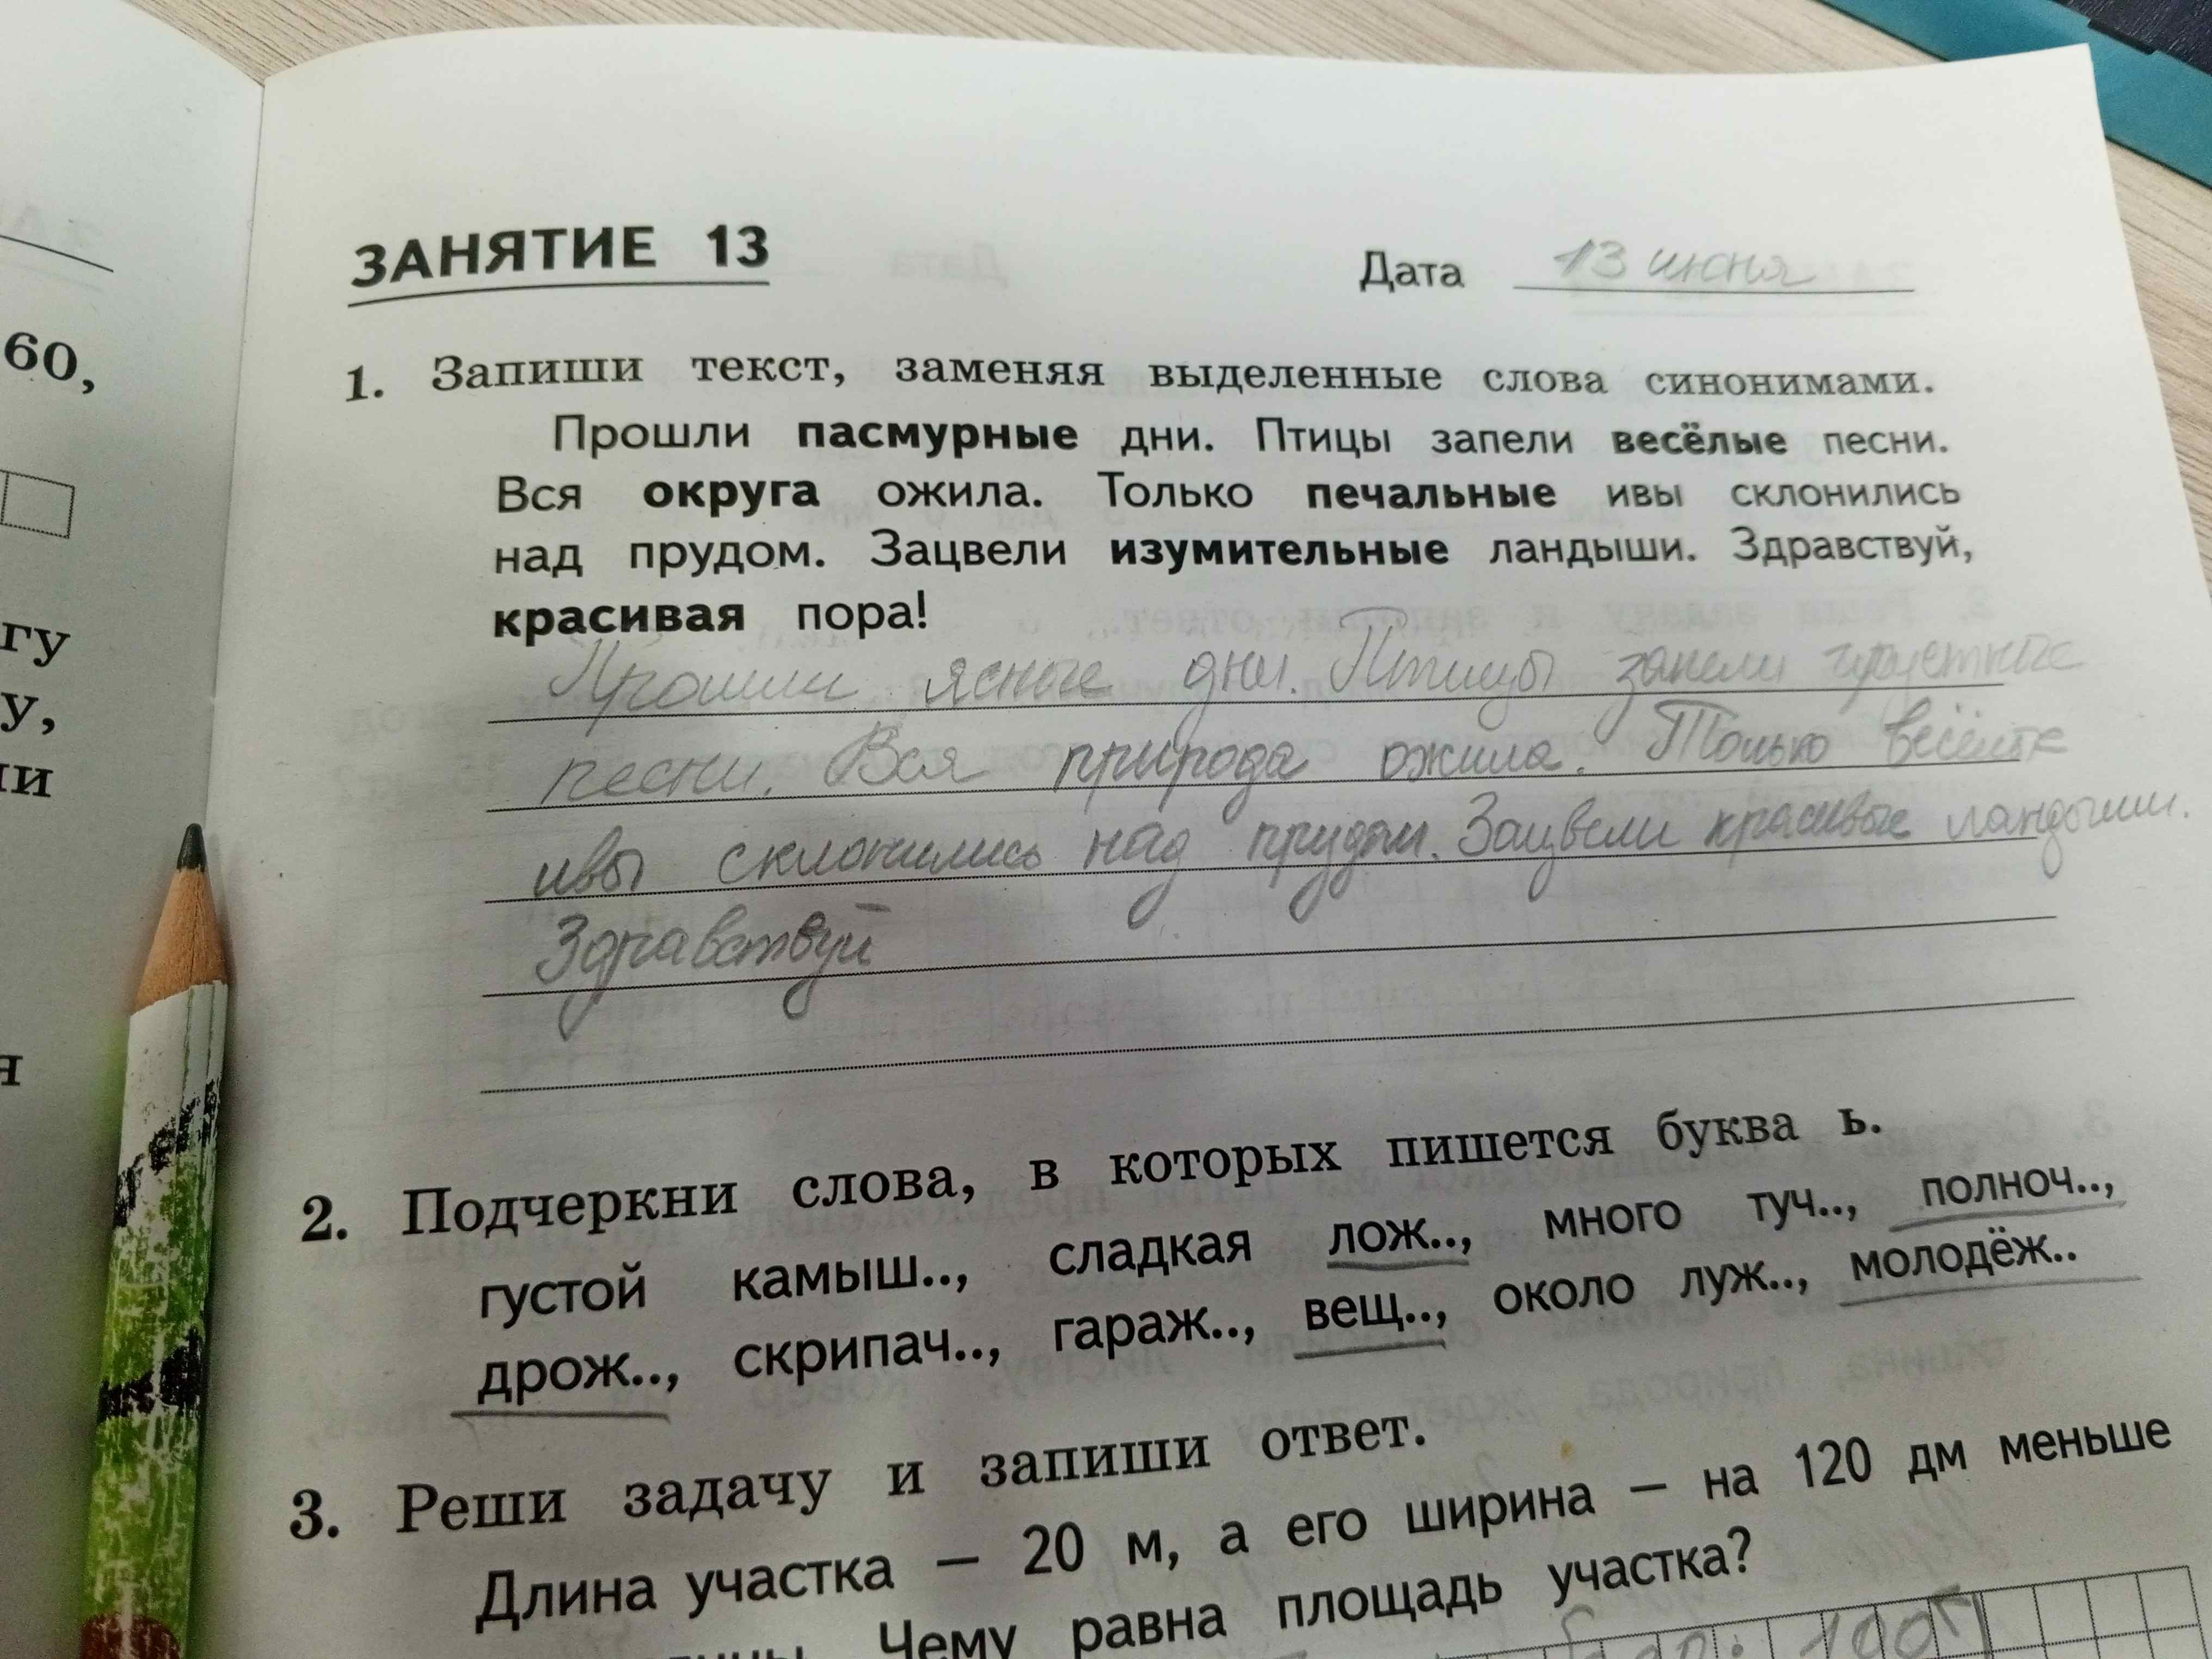 60,
гу
у,
ли
я
ЗАНЯТИЕ 13
Дата 13 июня
1. Запиши текст, заменяя выделенные слова синонимами.
Прошли пасмурные дни. Птицы запели весёлые песни.
Вся округа ожила. Только печальные ивы склонились
над прудом. Зацвели изумительные ландыши. Здравствуй,
красивая пора!
Прошли ясные дни. Птицы запели грустные
песни. Вся природа ожила. Только весёлые
ивы склонились над прудом. Зацвели красивые ландыши.
Здравствуй
2. Подчеркни слова, в которых пишется буква ь.
густой камыш.., сладкая лож.., много туч.., полноч..,
дрож.., скрипач.., гараж.., вещ.., около луж.., молодёж..
3. Реши задачу и запиши ответ.
Длина участка — 20 м, а его ширина — на 120 дм меньше
Чему равна площадь участка?